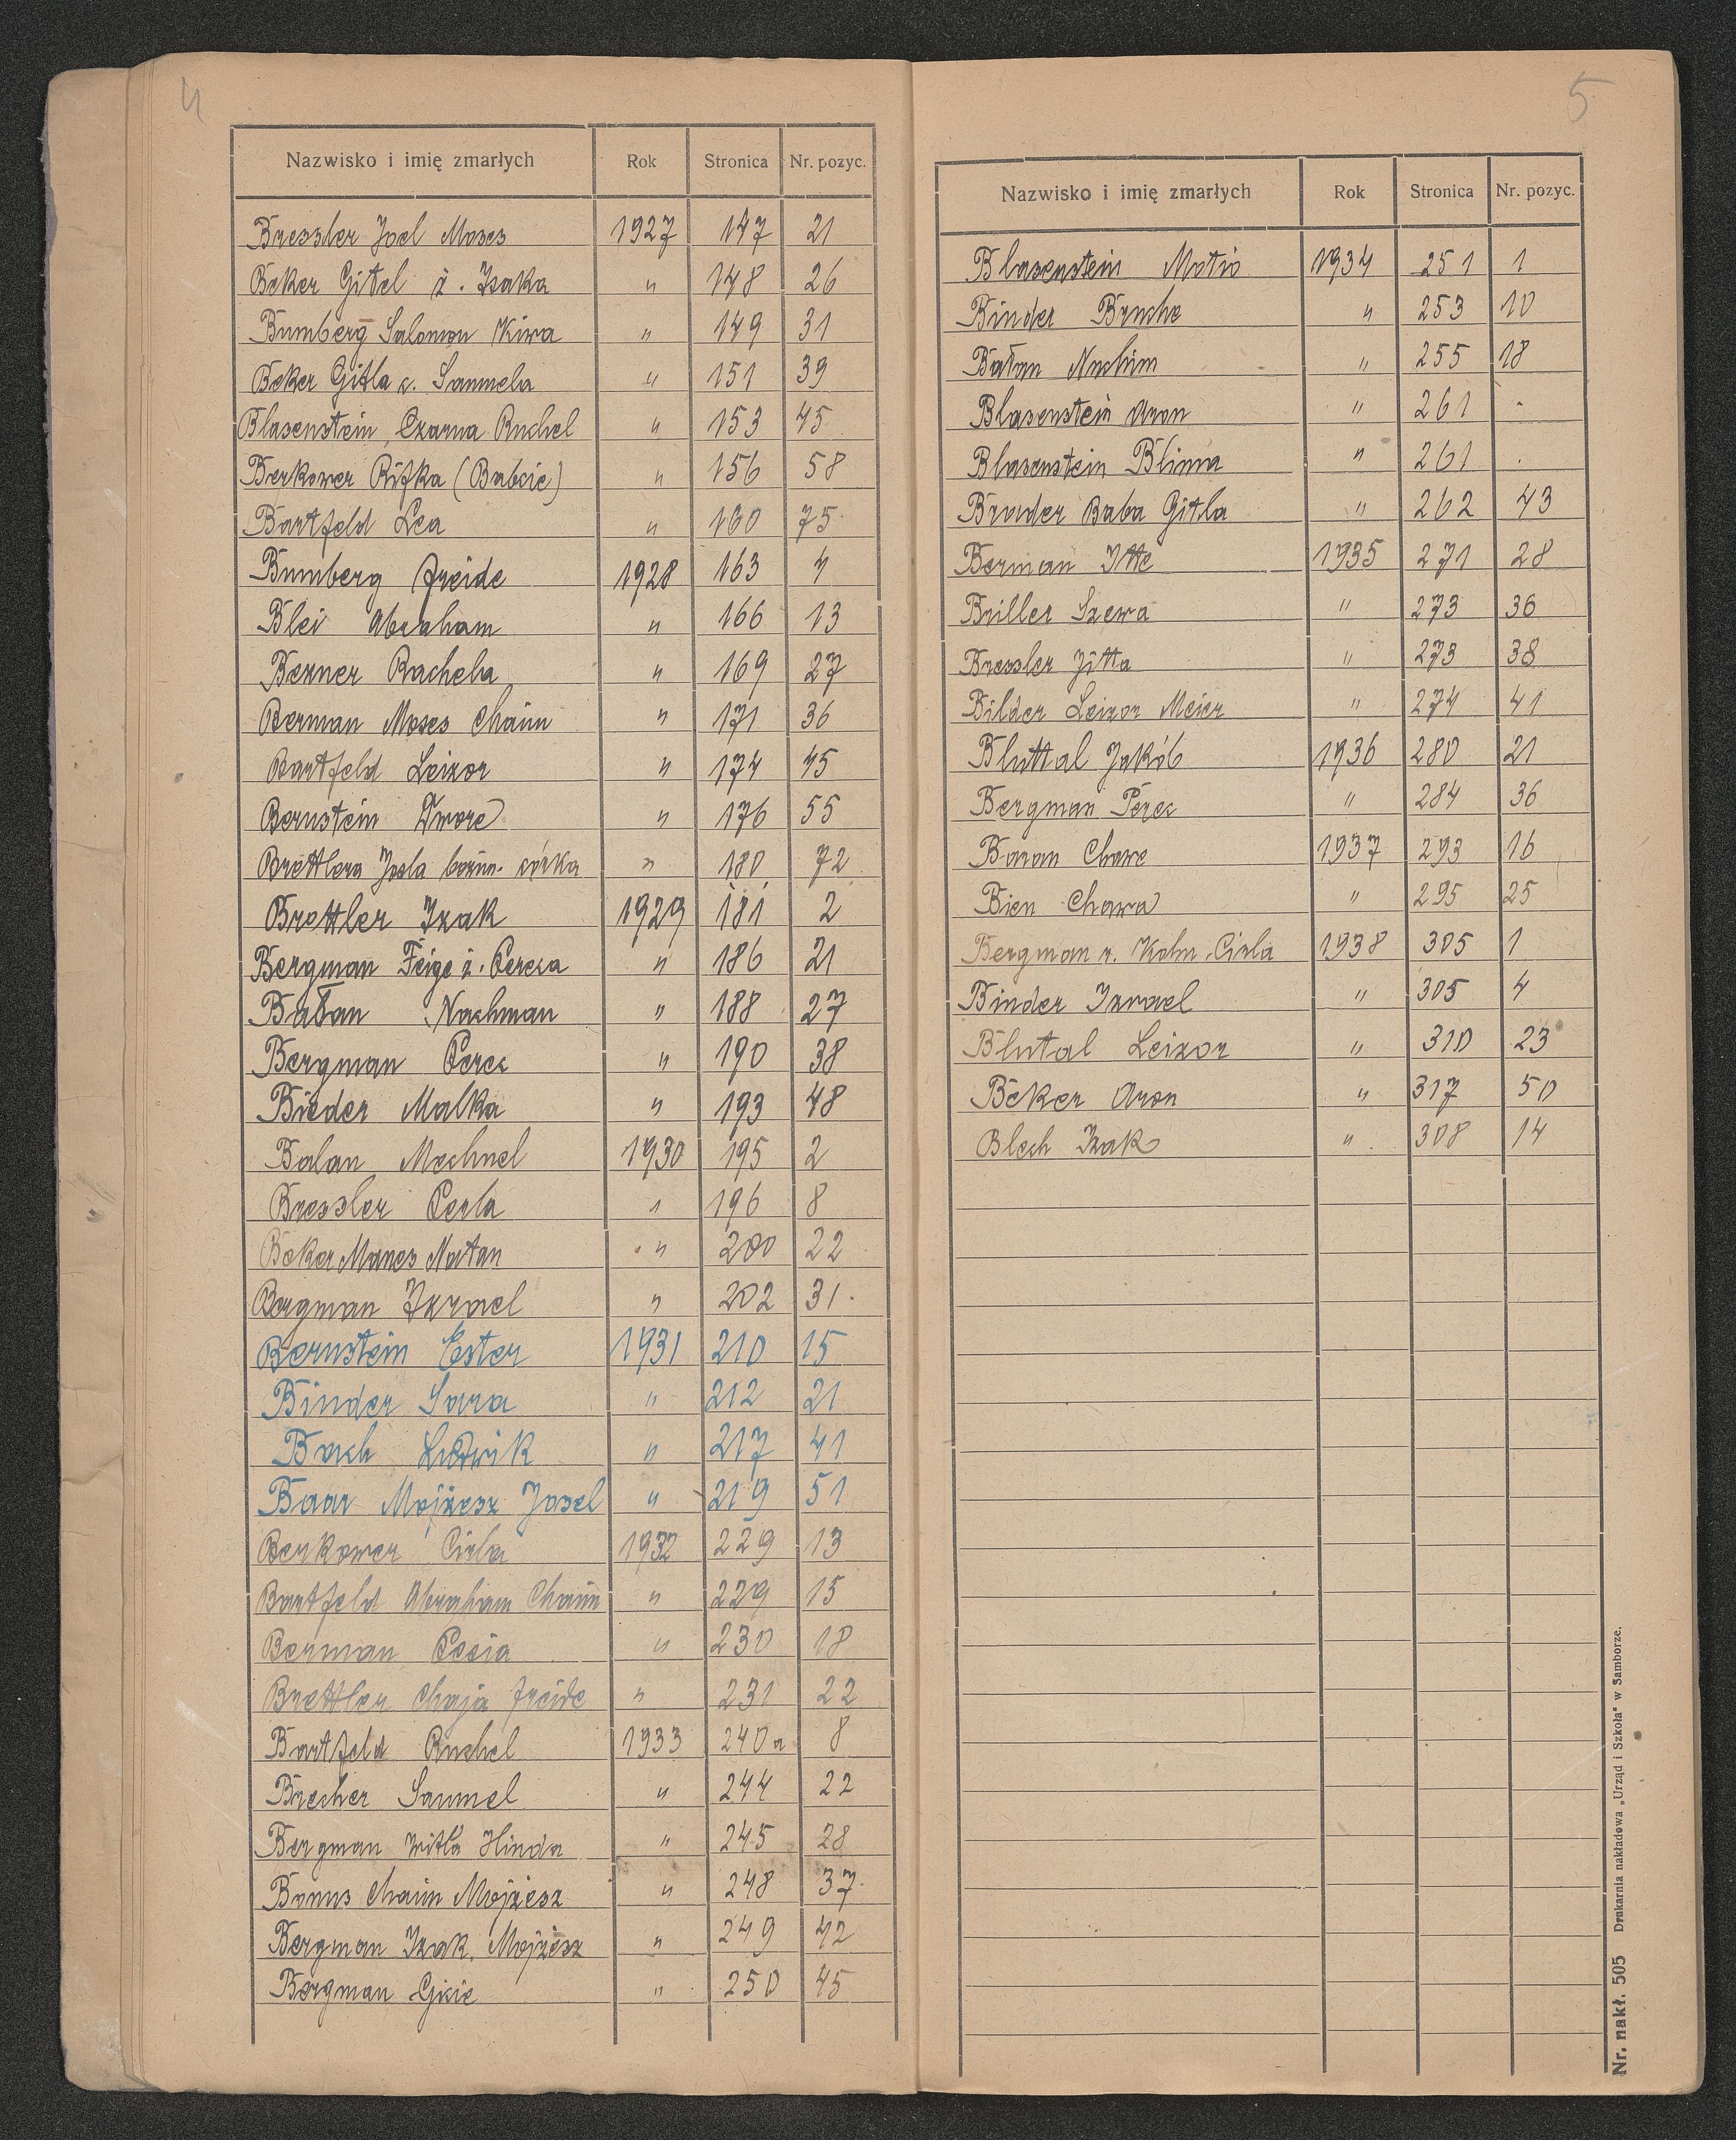 4
Nazwisko i imię zmarłych Rok Stronica Nr. pozyc.
Bressler Joel Moses 1927 147 21
Beker Gitel ż. Izaka " 148 26
Bumberg Salomon Kiwa " 149 31
Beker Gitla c. Samuela " 151 39
Blasenstein Czarna Ruchel " 153 45
Berkower Rifka (Babcie) " 156 58
Bartfeld Lea " 160 75
Bumberg Freide 1928 163 4
Blei Abraham " 166 13
Bezner Rachela " 169 27
Berman Moses Chaim " 171 36
Bartfeld Leizor " 174 45
Bernstein Dwore " 176 55
Brettlera Josla córka " 180 72
Brettler Izak 1929 181 2
Bergman Feige ż. Pereca " 186 21
Bałan Nachman " 188 27
Bergman Perec " 190 38
Bieder Malka " 193 48
Balan Mechuel 1930 195 2
Bressler Perla " 196 8
Beker Manes Natan " 200 22
Bergman Izrael " 202 31
Bernstein Ester 1931 210 15
Binder Sara " 212 21
Bach Ludwik " 217 41
Baar Mojżesz Josel " 219 51
Berkower Cirla 1932 229 13
Bartfeld Abraham Chaim " 229 15
Berman Pesia " 230 18
Brettler Chaja Freide " 231 22
Bartfeld Ruchel 1933 240a 8
Brecher Samuel " 244 22
Bergman Hinda " 245 28
Chaim Mojżesz " 248 37
Bergman Izak Mojżesz " 249 42
Bergman " 250 45
5
Nazwisko i imię zmarłych Rok Stronica Nr. pozyc.
Blasenstein Motio 1934 251 1
Binder Bruche " 253 10
Bałan Nuchim " 255 18
Blasenstein Aron " 261 -
Blasenstein Blima " 261 .
Broder Baba Gitla " 262 43
Berman Itte 1935 271 28
Briller Szewa " 273 36
Bressler Jitta " 273 38
Bilder Leizor Meier " 274 41
Bluttal Jakób 1936 280 21
Bergman Perec " 284 36
Baran Chawe 1937 293 16
Bien Chawa " 295 25
Bergman r. Kohn Cirla 1938 305 1
Binder Izrael " 305 4
Blutal Leizor " 310 23
Beker Aron " 317 50
Blech Izak " 308 14
Nr. nakł. 505 Drukarnia nakładowa „Urząd i Szkoła" w Samborze.